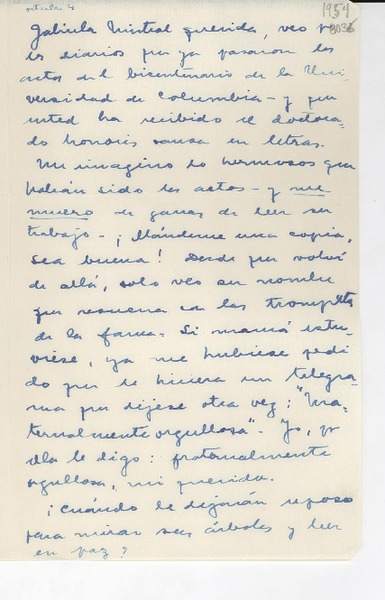 octubre 4
1954
Gabriela Mistral querida, veo por
los diarios que ya pasaron los
actos del bicentenario de la Uni-
versidad de Columbia - y que
usted ha recibido el doctora-
do honoris causa en letras.
Me imagino lo hermosos que
habrán sido los actos - y me
muero de ganas de leer su
trabajo - ¡Mándeme una copia,
sea buena! Desde que volví
de allá, solo veo su nombre
que resuena con las trompetas
de la fama. Si mamá estu-
viese, ya me hubiese pedi-
do que le hiciera un telegra-
ma que dijese otra vez: "Ma-
ternalmente orgullosa". Yo, por
ella le digo: fraternalmente
orgullosa, mi querida.
¡Cuándo le dejarán reposo
para mirar sus árboles y leer
en paz?